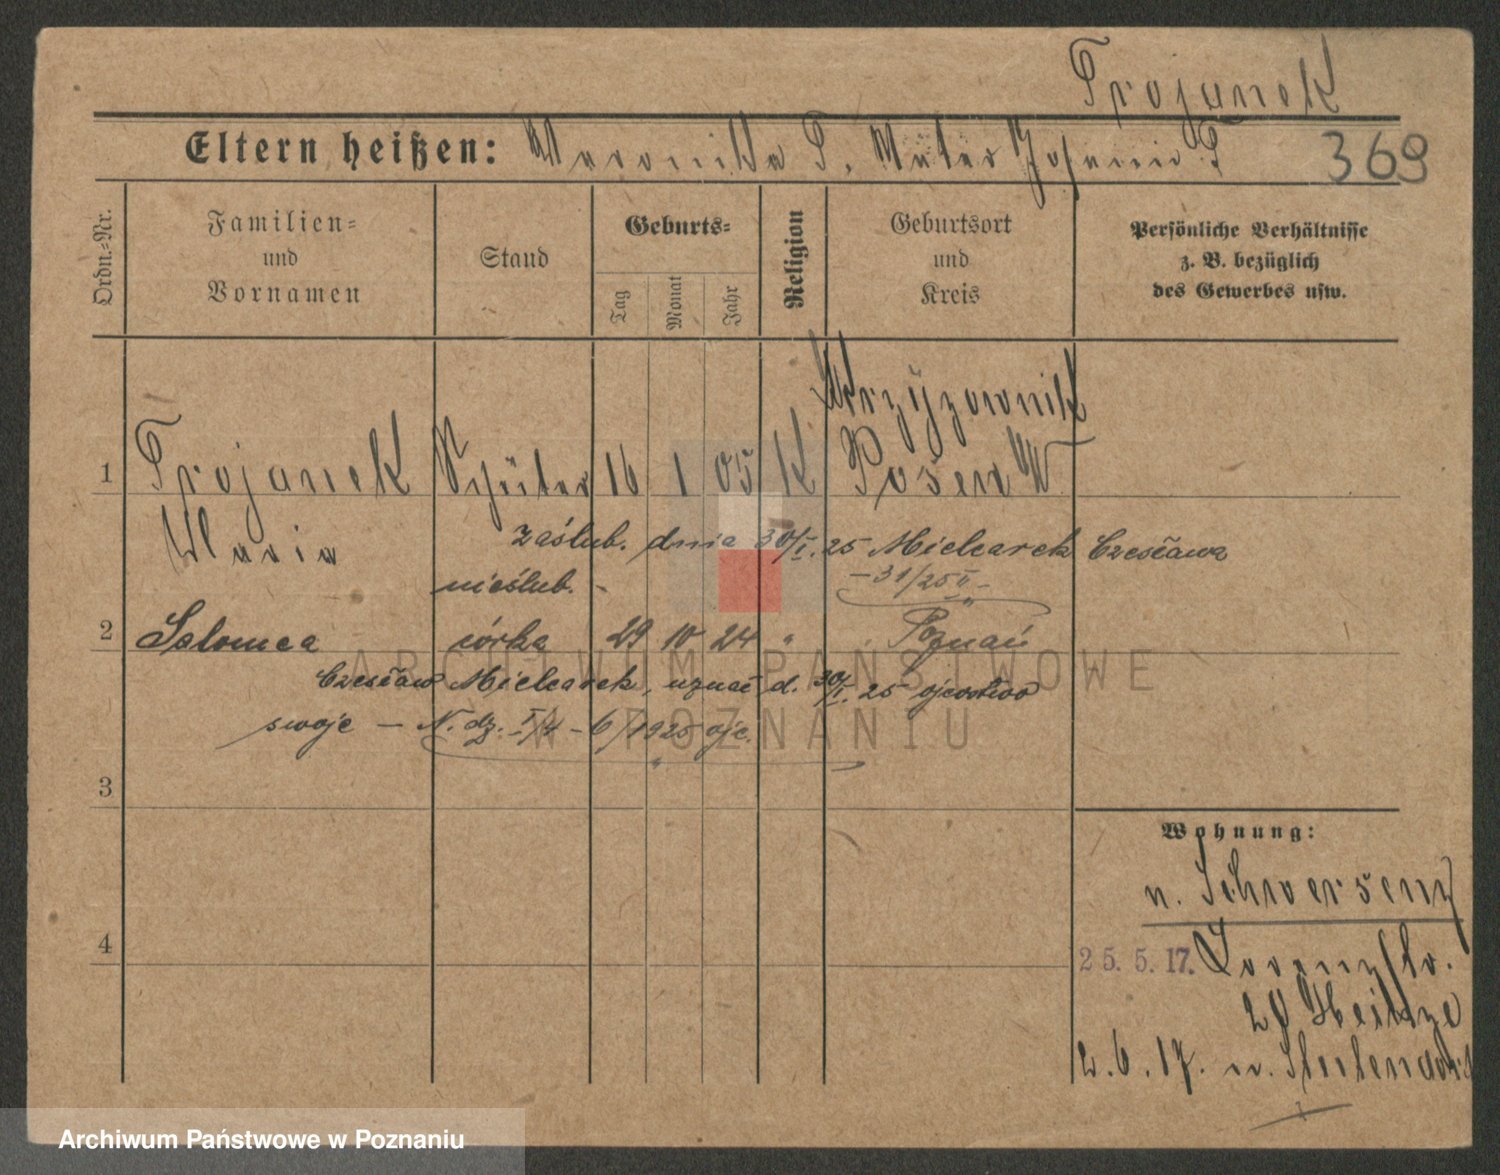 Trojanek
Eltern heißen: Veronika T. Mutter T
369
Ordn.=Nr.
Familien=
und
Vornamen
Stand
Geburts=
Tag
Monat
Jahr
Religion
Geburtsort
und
Kreis
Persönliche Verhältnisse
z. B. bezüglich
des Gewerbes usw.
Krzyżownik
1 Trojanek 16 1 05 K Posen W
Maria
zaślub. dnia 30/I. 25 Mielcarek Czesława
nieślub. - - 31/25 II -
2 Salomea córka 29 10 24 " Poznań
Czesław Mielcarek, uznał d. 30/I. 25 ojcostwo
swoje - N. dz. I/4 - 6/1925 ojc.
3
4
Wohnung:
n. Schwersenz
25. 5. 17. Lorenzstr.
20
2. 6. 17. n.
ARCHIWUM PAŃSTWOWE
W POZNANIU
Archiwum Państwowe w Poznaniu